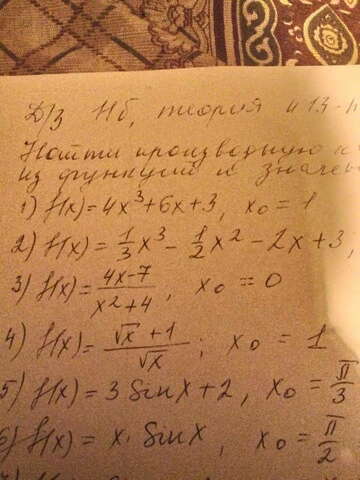 Д/з Н6, теория
Найти производную
из функций и значе
1) f(x)=4x³+6x+3, x₀=1
2) f(x)=1/3x³-1/2x²-2x+3,
3) f(x)=4x-7/x²+4, x₀=0
4) f(x)=√x+1/√x; x₀=1
5) f(x)=3 sinx+2, x₀=π/3
6) f(x)=x·sinx, x₀=π/2